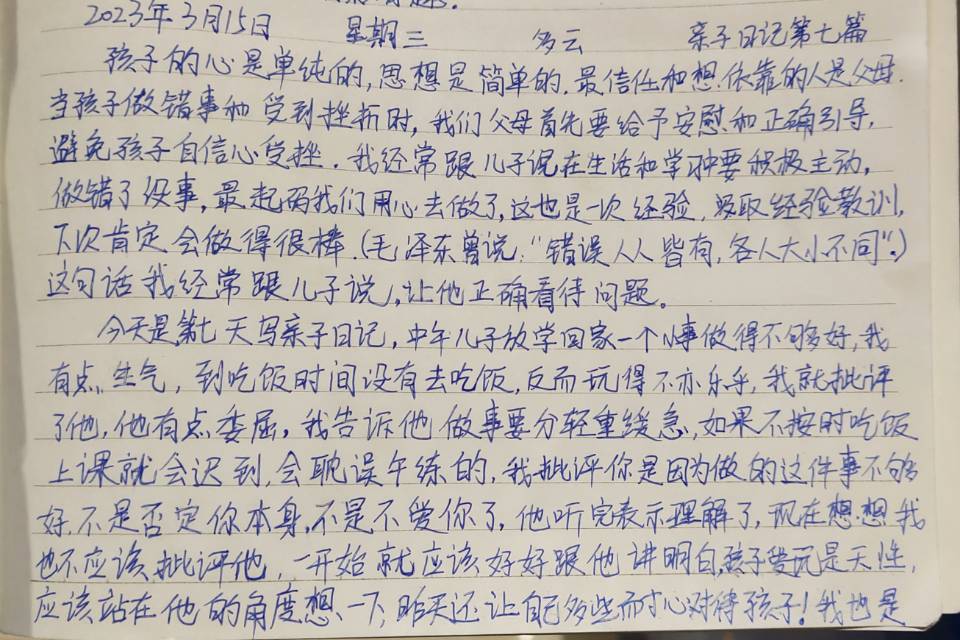 2023年3月15日 星期三 多云 亲子日记第七篇
孩子的心是单纯的,思想是简单的.最信任和想.依靠的人是父母.
当孩子做错事和受到挫折时,我们父母首先要给予安慰和正确引导,
避免孩子自信心受挫.我经常跟儿子说在生活和学习中要积极主动,
做错了没事,最起码我们用心去做了,这也是一次经验,吸取经验教训,
下次肯定会做得很棒.(毛泽东曾说:“错误人人皆有,各人大小不同”.)
这句话我经常跟儿子说,让他正确看待问题。
今天是第七天写亲子日记,中午儿子放学回家一个小事做得不够好,我
有点生气,到吃饭时间没有去吃饭,反而玩得不亦乐乎,我就批评
了他,他有点委屈,我告诉他做事要分轻重缓急,如果不按时吃饭
上课就会迟到,会耽误午练的,我批评你是因为做的这件事不够
好,不是否定你本身,不是不爱你了,他听完表示理解了,现在想想我
也不应该批评他,一开始就应该好好跟他讲明白,孩子爱玩是天性,
应该站在他的角度想一下,昨天还让自己多些耐心对待孩子!我也是